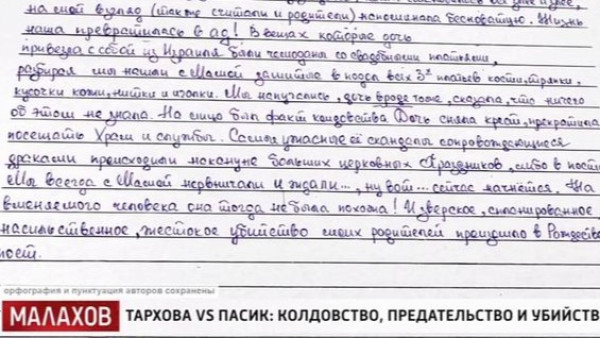 на мой взгляд (так же считали и родители) напоминала бесноватую. Жизнь
наша превратилась в ад! В вещах которые дочь
привезла с собой из Израиля были чемоданы со свадебными платьями,
разбирая мы нашли с Машей зашитые в подол всех 3х платьев кости, тряпки,
кусочки кожи, нитки и иголки. Мы испугались, дочь вроде тоже, сказала, что ничего
об этом не знала. На лицо был факт колдовства. Дочь сняла крест, прекратила
посещать Храм и службы. Самые ужасные её скандалы сопровождающиеся
драками происходили накануне больших церковных Праздников, либо в пост.
Мы всегда с Машей нервничали и ждали..., ну вот... сейчас начнётся. На
вменяемого человека она тогда не была похожа! Изверское, спланированное
насильственное, жестокое убийство моих родителей произошло в Рождество
пост.
орфография и пунктуация авторов сохранены
МАЛАХОВ ТАРХОВА VS ПАСИК: КОЛДОВСТВО, ПРЕДАТЕЛЬСТВО И УБИЙСТВ